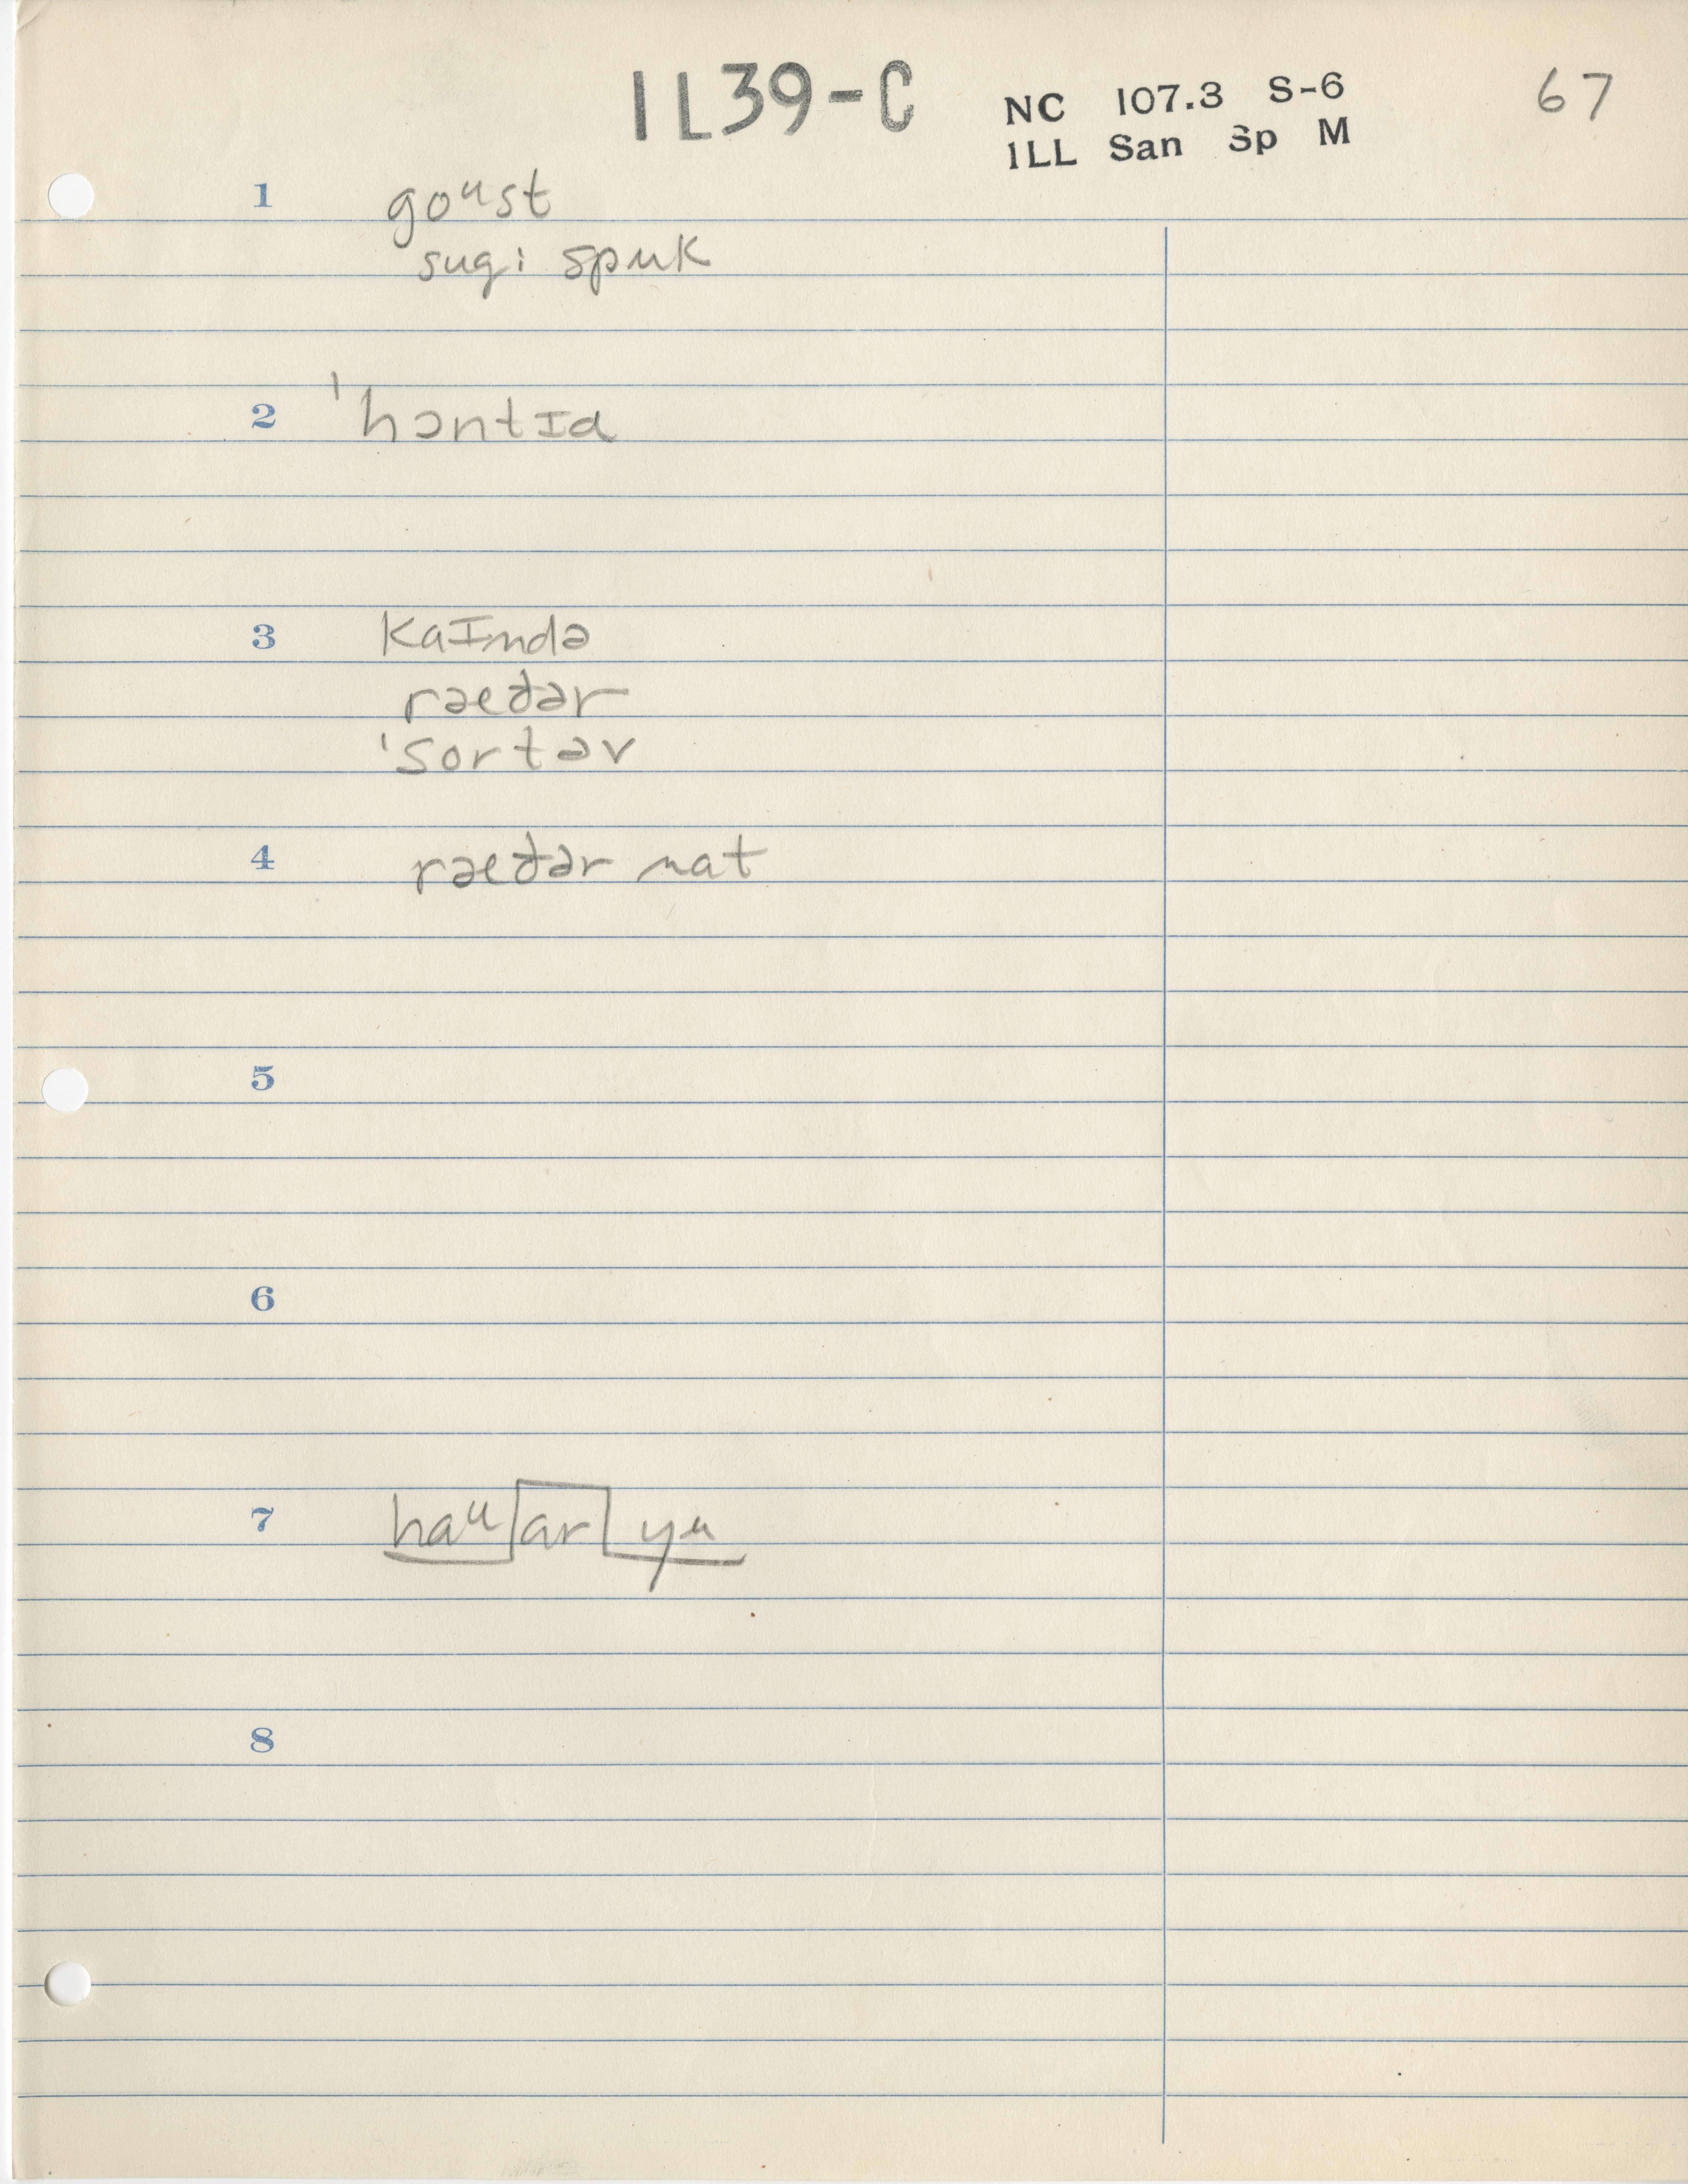 IL39-C
NC 107.3 S-6 67
ILL San Sp M
1 goᵘst
sugi spuk
2 'hɔntɪd
3 kaɪndə
ræðər
'sortəv
4 ræðər nat
5
6
7 haᵘ ar yu
8